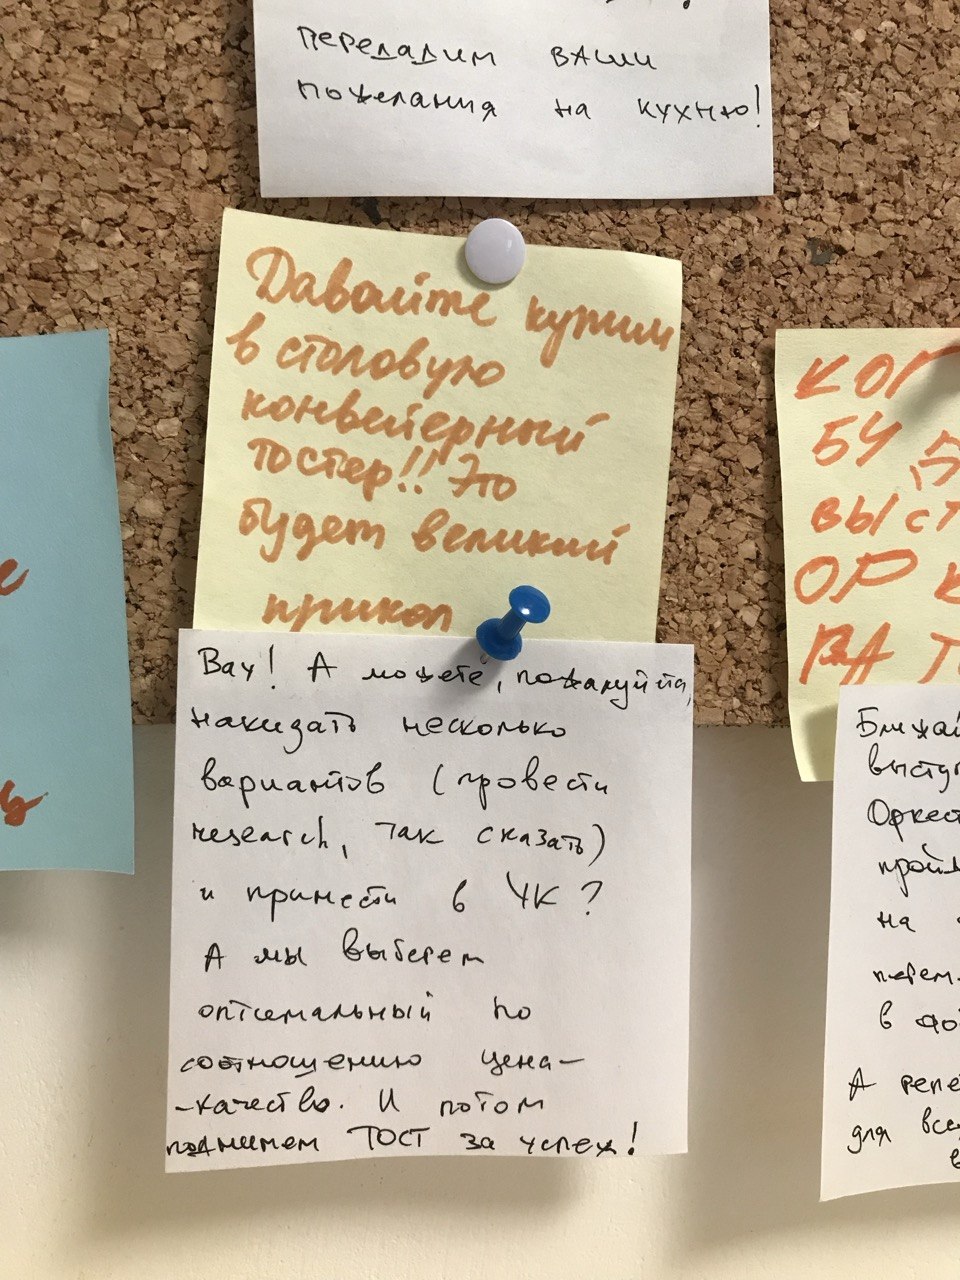 передадим ваши
пожелания на кухню!
Давайте купим
в столовую
конвейерный
тостер!! Это
будет великий
прикол
Вау! А можете, пожалуйста,
накидать несколько
вариантов (провести
research, так сказать)
и принести в УК?
А мы выберем
оптимальный по
соотношению цена-
-качество. И потом
поднимем ТОСТ за успех!
КОГ
БУ
ВЫСТ
ОР К
ВА Т
Ближай
высту
Оркест
пройд
на
перем
в фо
А репе
для все
в